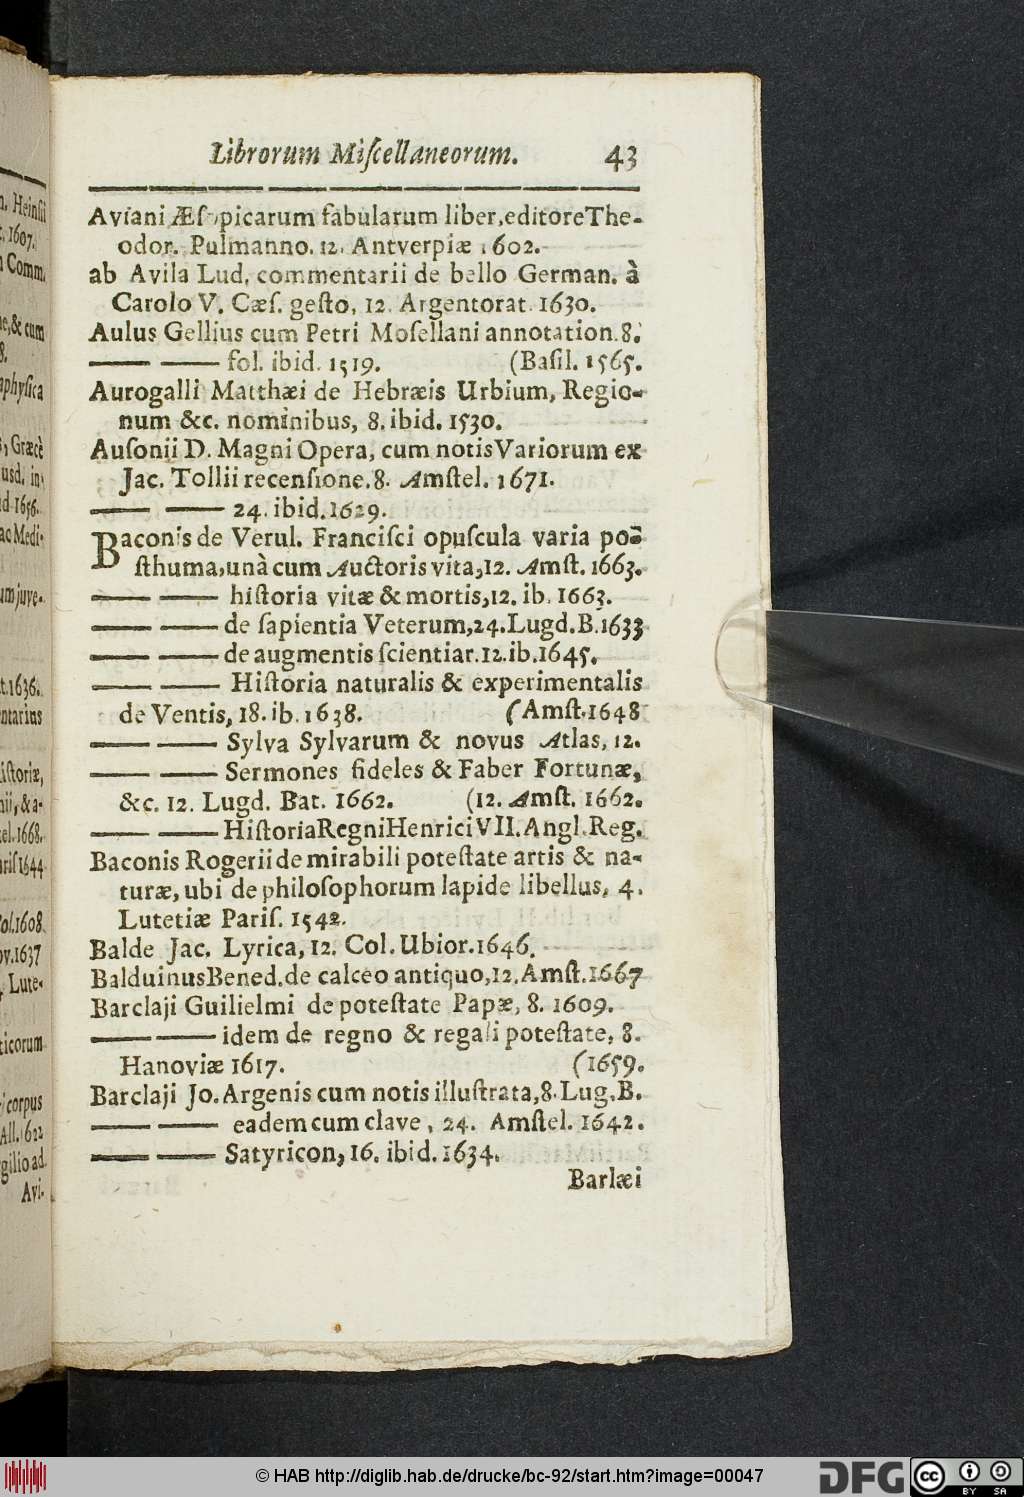 Librorum Miſcellaneorum. 43
Aviani Æſopicarum fabularum liber, editore The-
odor. Pulmanno. 12. Antverpiæ 1602.
ab Avila Lud. commentarii de bello German. à
Carolo V. Cæſ. geſto, 12. Argentorat. 1630.
Aulus Gellius cum Petri Moſellani annotation. 8.
—— —— fol. ibid. 1519. (Baſil. 1565.
Aurogalli Matthæi de Hebræis Urbium, Regio-
num &c. nominibus, 8. ibid. 1530.
Auſonii D. Magni Opera, cum notis Variorum ex
Jac. Tollii recenſione. 8. Amſtel. 1671.
—— —— 24. ibid. 1629.
Baconis de Verul. Franciſci opuſcula varia po-
ſthuma, unà cum Auctoris vita, 12. Amſt. 1663.
—— —— hiſtoria vitæ & mortis, 12. ib. 1663.
—— —— de ſapientia Veterum, 24. Lugd. B. 1633
—— —— de augmentis ſcientiar. 12. ib. 1645.
—— —— Hiſtoria naturalis & experimentalis
de Ventis, 18. ib. 1638. (Amſt. 1648
—— —— Sylva Sylvarum & novus Atlas, 12.
—— —— Sermones fideles & Faber Fortunæ,
&c. 12. Lugd. Bat. 1662. (12. Amſt. 1662.
—— —— Hiſtoria Regni Henrici VII. Angl. Reg.
Baconis Rogerii de mirabili poteſtate artis & na-
turæ, ubi de philoſophorum lapide libellus, 4.
Lutetiæ Pariſ. 1542.
Balde Jac. Lyrica, 12. Col. Ubior. 1646.
Balduinus Bened. de calceo antiquo, 12. Amſt. 1667
Barclaji Guilielmi de poteſtate Papæ, 8. 1609.
—— —— idem de regno & regali poteſtate, 8.
Hanoviæ 1617. (1659.
Barclaji Jo. Argenis cum notis illuſtrata, 8. Lug. B.
—— —— eadem cum clave, 24. Amſtel. 1642.
—— —— Satyricon, 16. ibid. 1634.
Barlæi
© HAB http://diglib.hab.de/drucke/bc-92/start.htm?image=00047
DFG
cc BY SA